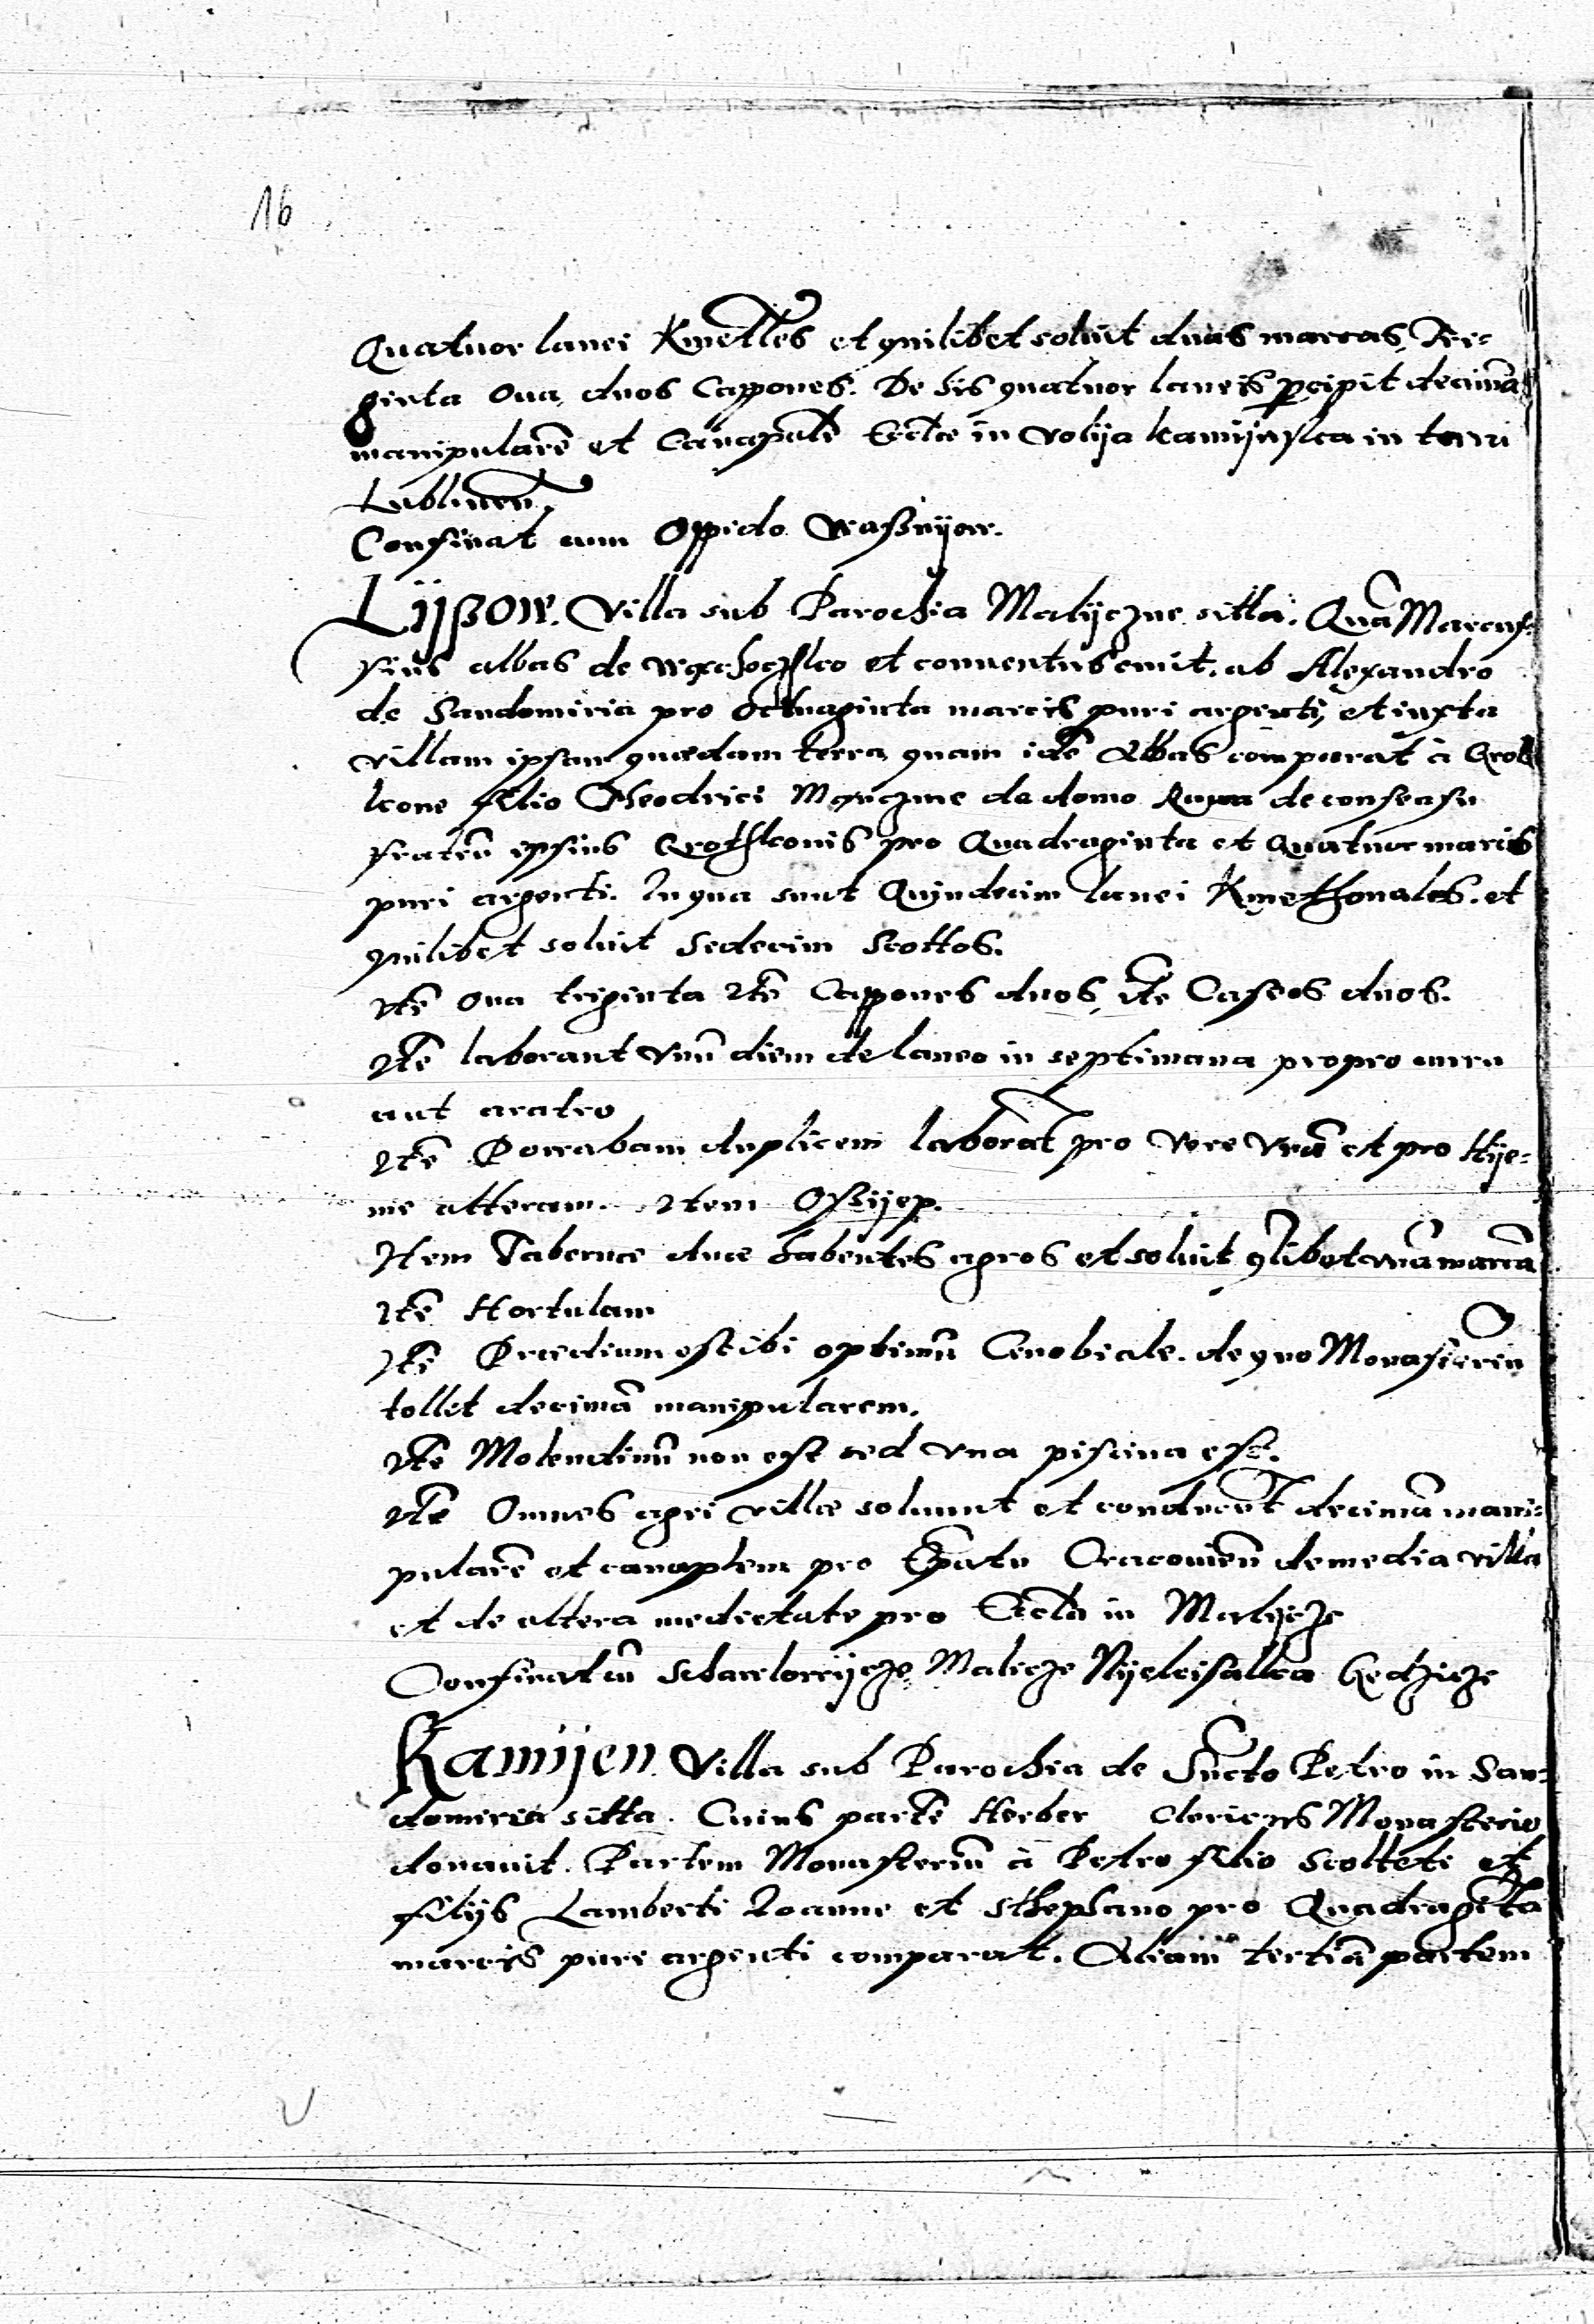 16
Quatuor lanei Kmetles et quilibet soluit duas marcas, Tri-
ginta Oua, duos Cappones. De his quatuor laneis p̱cipit decimā
manipularē et Canapalē Eccl̄ia in Volija kamijnska in terri
Lublinen̄.
Confinat cum Oppido Waßnijow.
Lijßow. Villa sub Parochia Malijczne sitta. Quā Marcus
sius abbas de Wąchoczsko et conuentus emit, ab Alexandro
de Sandomiria pro octuaginta marcis puri argenti, et iuxta
villam ipsam quædam terra, quam idē Abbas comparat à Grot
kone filio Theodrici de domo Rawa de consensu
fratrū ipsius Grothkonis pro Quadraginta et Quatuor marcis
puri argenti. In qua sunt Quindecim lanei Kmethonales. et
quilibet soluit Sedecim Scottos.
Itē Oua triginta Itē Cappones duos, Itē Caseos duos.
Itē laborant vnū diem de laneo in septimana propro curru
aut aratro
Itē Powabam duplicem laborāt pro Vere vnā et pro Hije-
me alteram. Item Oßijep.
Item Tabernæ duæ habentes agros et soluit q̄libet vnā marcā
Itē Hortulam
Itē Prædium est ibi optimū Cenobiale. de quo Monasteriū
tollit decimā manipularem.
Itē Molendinū non est sed vna piscina est.
Itē Omnes agri villæ soluunt et conducūt decimā mani-
pularē et canaplem pro Ep̄atu Cracouien̄ de media villa
et de altera medietate pro Eccl̄ia in Malijcze
Confinat cū Malicze Nijekisalka
Kamijen Villa sub Parochia de Sācto Petro in San-
domiria sitta. Cuius partē Herber Clericus Monasterio
donauit. Partem Monasteriū à Petro filio Scolteti et
filijs Lamberti Joanne et Stephano pro Quadragīta
marcis puri argenti comparat. Aliam tertiā partem